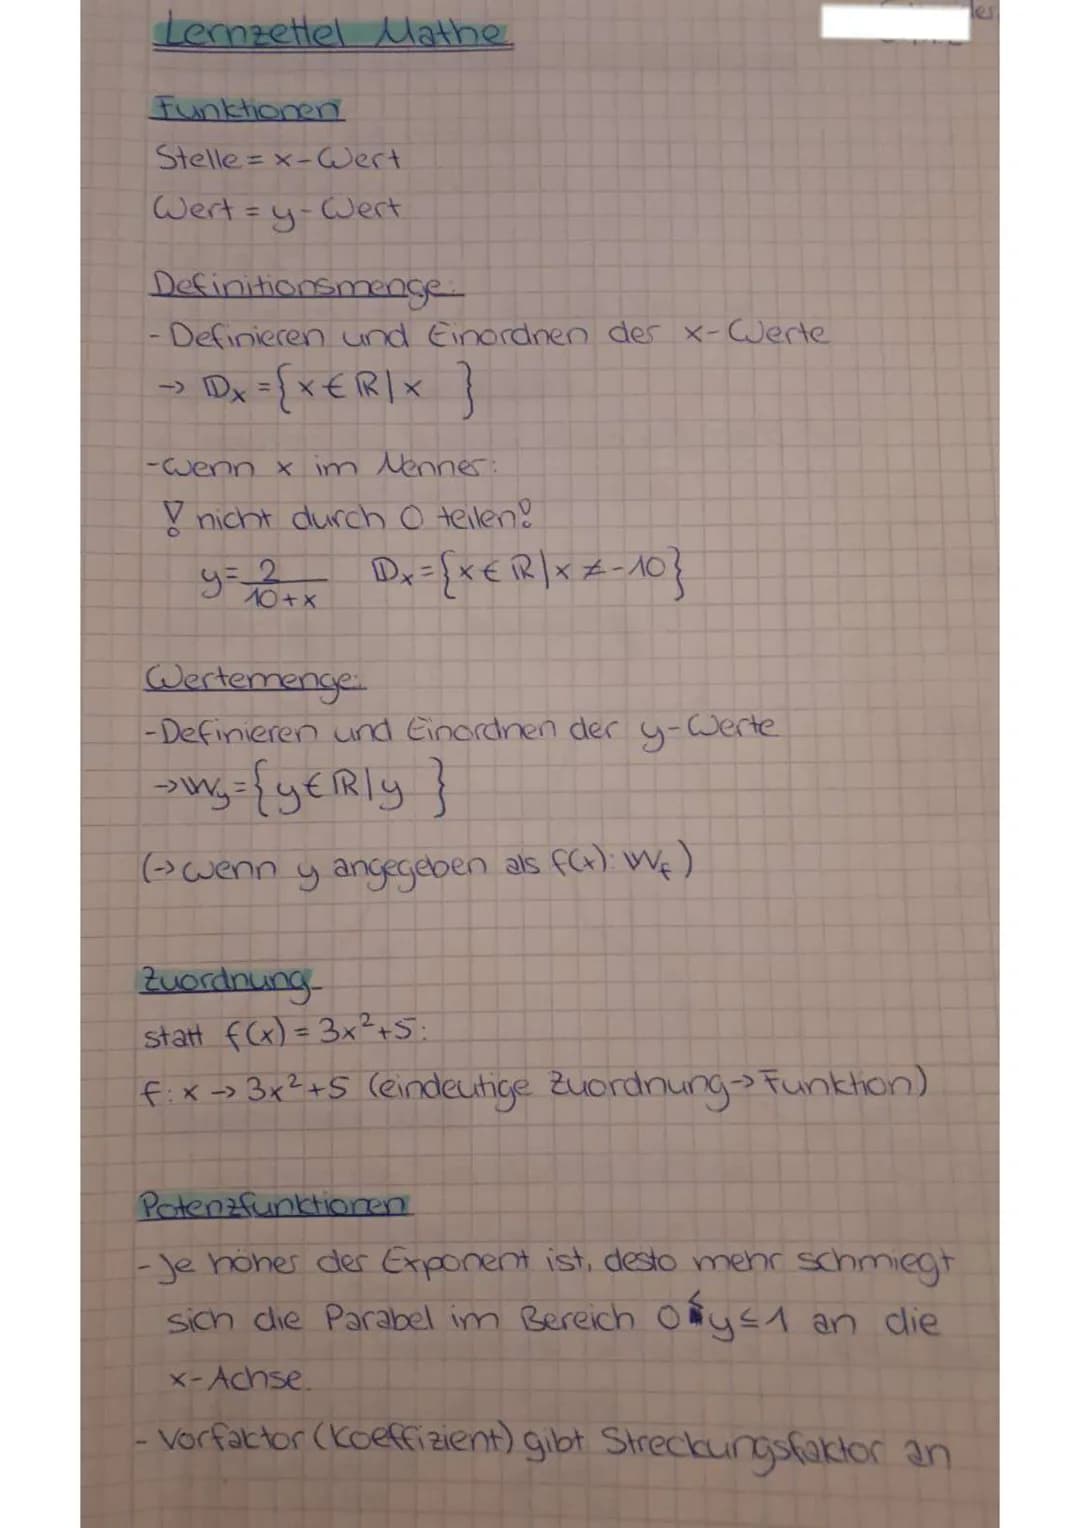 Lernzettel Mathe
Funktionen
Stelle = x-Wert
Wert = y-Wert
Definitionsmenge:
- Definieren und Einordnen der x-Werte
→ 𝔻x = {x ∈ ℝ | x }
- wenn x im Nenner:
! nicht durch 0 teilen!
y = 2/(10+x) 𝔻x = {x ∈ ℝ | x ≠ -10}
Wertemenge:
- Definieren und Einordnen der y-Werte
→ 𝕎y = {y ∈ ℝ | y }
(→ wenn y angegeben als f(x): 𝕎f)
Zuordnung
statt f(x) = 3x²+5:
f: x → 3x²+5 (eindeutige Zuordnung → Funktion)
Potenzfunktionen
- Je höher der Exponent ist, desto mehr schmiegt
sich die Parabel im Bereich 0 ≤ y ≤ 1 an die
x-Achse.
- Vorfaktor (Koeffizient) gibt Streckungsfaktor an